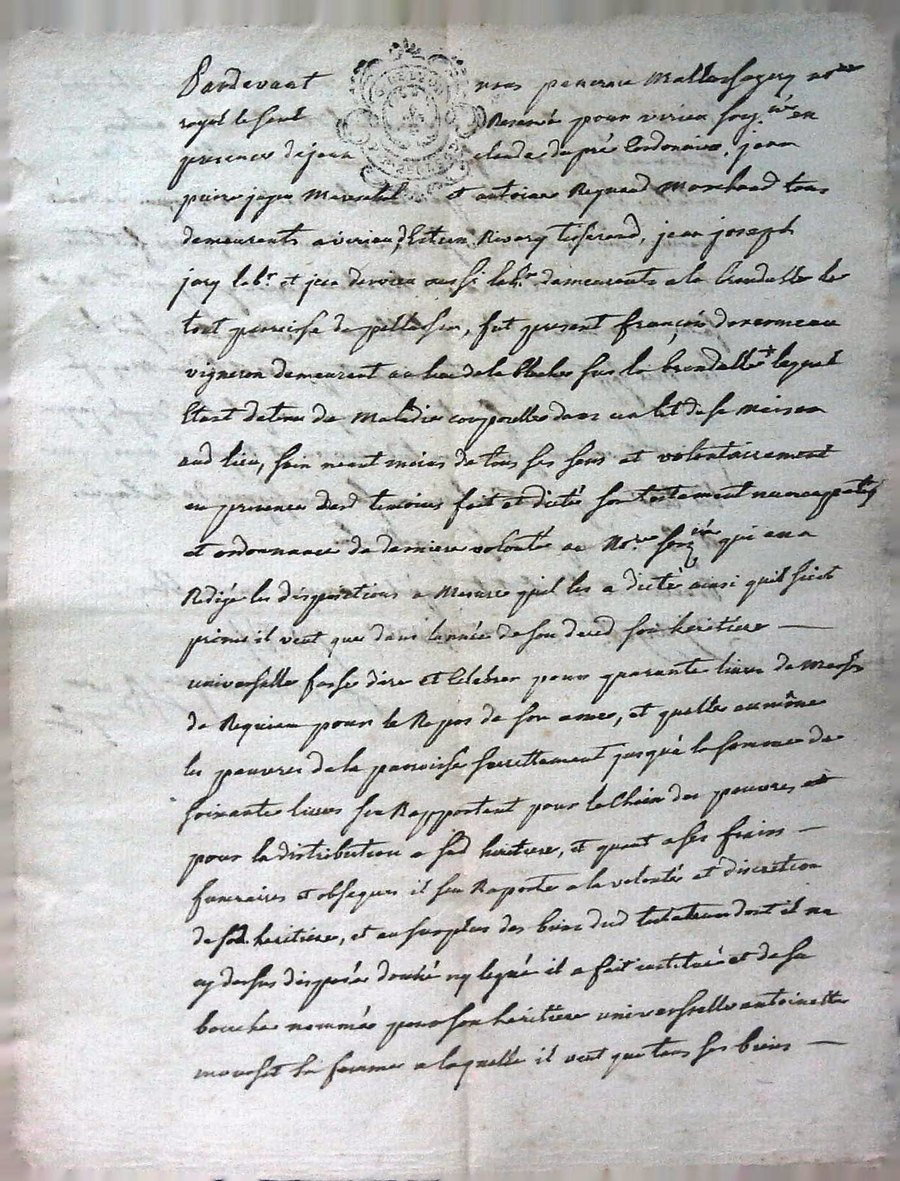 Pardevant nous pancrace Mallassagny no.re
royal le sent Reservé pour virieu soy.né en
presence de jean claude dupré Cordonnier, jean
pierre jayet Mareschal et antoine Reynaud Marchand tous
demeurants a virieu, Estienne Rivary tisserand, jean joseph
jary lab.r et jean dervieu aussi lab.r demeurants a la brandalle le
tout paroisse de pellussin, fut present françois donomieau
vigneron demeurant au lieu de la blache sur la brandalle lequel
Etant detenu de Maladie corporelle dans un lit de sa Maison
aud lieu, sain neant moins de tous ses sens et volontairement
en presence desd temoins fait et dicté son testament nuncupatif
et ordonnance de derniere volonté au No.re sous.né qui en a
Redigé les dispositions a Mesure quil les a dicté ainsi quil suict
primo il veut que dans lannée de son deced son heritiere —
universelle fasse dire et Celebrer pour quarante livres de Messes
de Requiem pour le Repos de son ame, et quelle aumône
les pauvres de la paroisse secrettement jusqu'a la somme de
soixante livres sen Rapportant pour le Choix des pauvres et
pour la distribution a sad heritiere, et quant a ses fraix —
funeraires et obseques il sen Raporte a la volonté et discretion
de sad. heritiere, et au surplus des biens dud testateur dont il na
cy dessus disposé donné ny legué il a fait institué et de sa
bouche nommée pour son heritiere universelle antoinette
mouchet sa femme a laquelle il veut que tous ses biens —